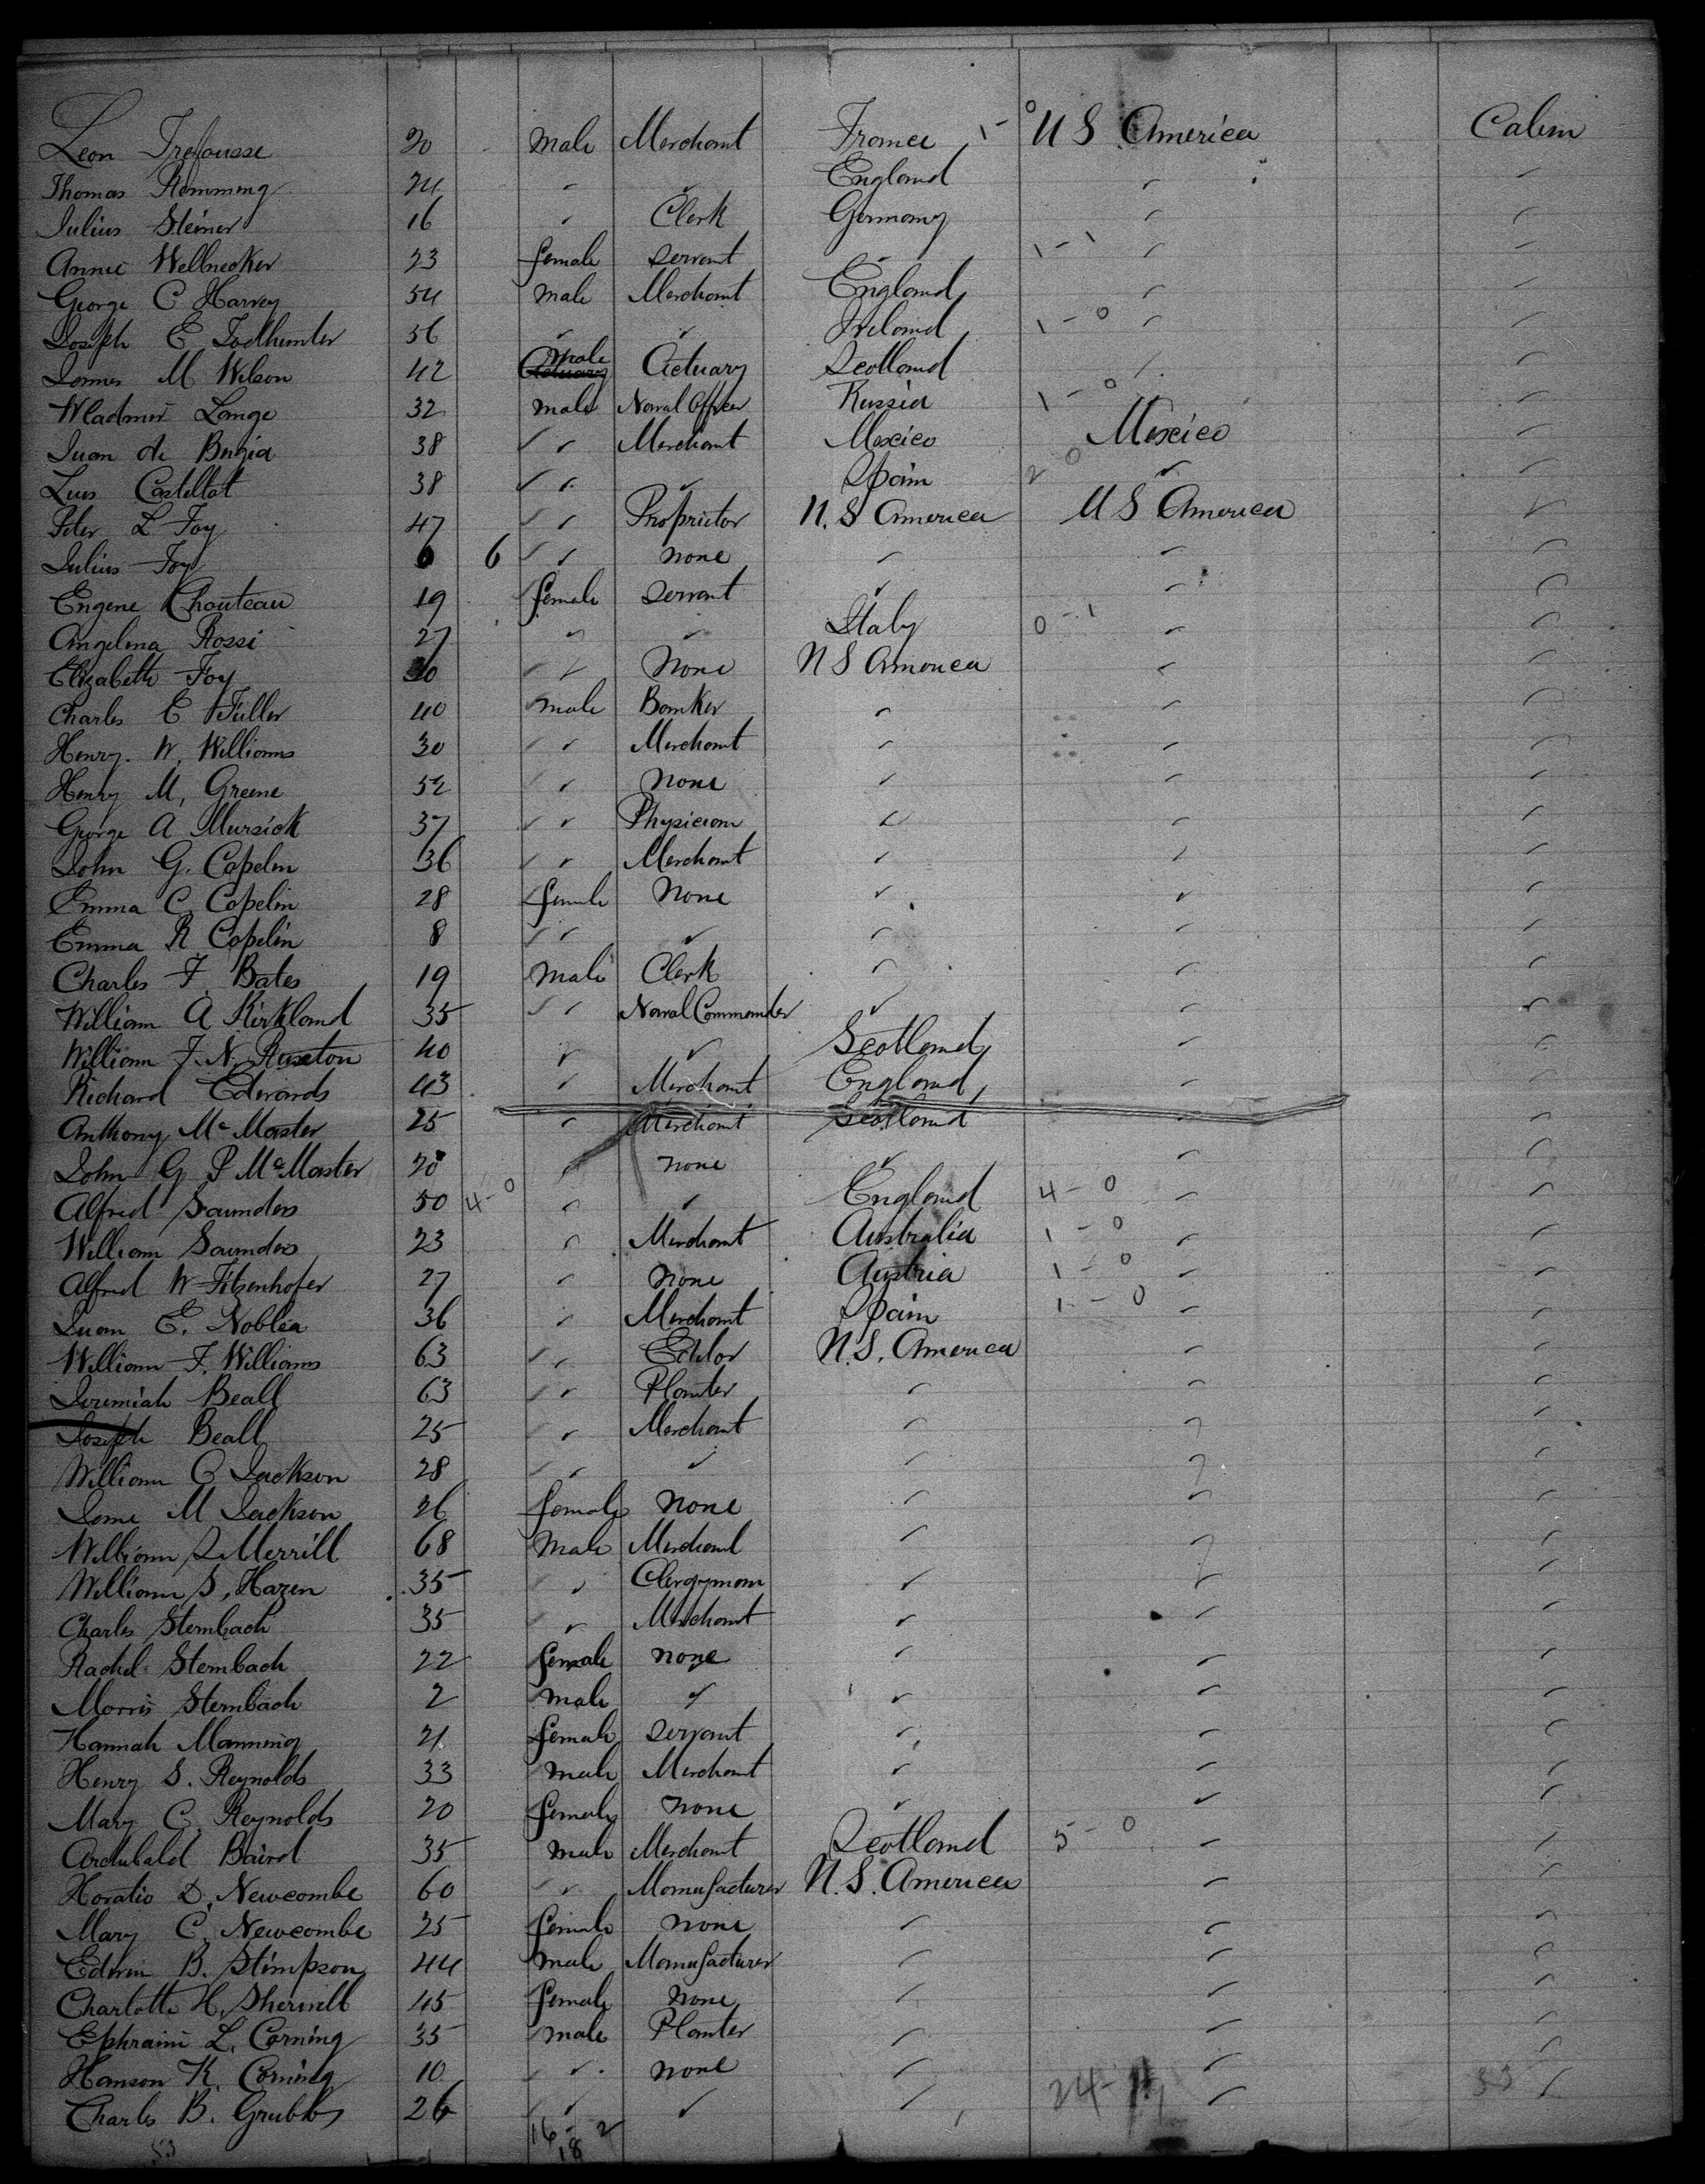 Leon Trefousse 20 male Merchant France 1-0 U S America Cabin
Thomas Remming 24 " " England " "
Julius Steiner 16 " Clerk Germany " "
Annie Wellnecker 23 female servant " 1-1 " "
George C Harvey 54 male Merchant England " "
Joseph E Todhunter 56 " " Ireland 1-0 " "
James M Wilson 42 male Actuary Scotland " "
Wladmir Lange 32 male Naval Officer Russia 1-0 "
Juan de 38 " " Merchant Mexico Mexico "
Luis Castellat 38 " " " Spain 2 0 " "
Peter L Foy 47 " " Proprietor U. S America U S America "
Julius Foy 6 6 " " none " " "
Eugene Chouteau 19 female servant " " "
Angelina Rossi 27 " " Italy 0-1 " "
Elizabeth Foy 30 " " None U S America " "
Charles E Fuller 40 male Banker " " "
Henry. W. Williams 30 " " Merchant " " "
Henry M, Greene 52 " " none " " "
George A Mursick 37 " " Physician " " "
John G. Copelin 36 " " Merchant " " "
Emma C. Copelin 28 female None " " "
Emma R Copelin 8 " " " " " "
Charles F. Bates 19 male Clerk " " "
William A Kirkland 35 " " Naval Commander " " "
William F. N. Ruxton 40 " " Scotland " "
Richard Edwards 43 " Merchant England " "
Anthony Mc Master 25 " Merchant Scotland " "
John G P McMaster 20 " none " " "
Alfred Saunders 50 4-0 " " England 4-0 " "
William Saunders 23 " Merchant Australia 1-0 " "
Alfred W Fitzenhofer 27 " none Austria 1-0 " "
Juan E. Noblea 36 " Merchant Spain 1-0 " "
William F. Williams 63 " " Editor U.S. America " "
Jeremiah Beall 63 " " Planter " " "
Joseph Beall 25 " " Merchant " " "
William C Jackson 28 " " " " " "
Jane M Jackson 26 female none " " "
William S Merrill 68 Male Merchant " " "
William S, Hazen 35 " " Clergyman " " "
Charles Sternbach 35 " " Merchant " " "
Rachel Sternbach 22 female none " " "
Morris Sternbach 2 male " " " "
Hannah Manning 21 female servant " " "
Henry S. Reynolds 33 male Merchant " " "
Mary C. Reynolds 20 female none " " "
Archibald Baird 35 male Merchant Scotland 5-0 " "
Horatio D. Newcombe 60 " " Manufacturer U.S. America " "
Mary C. Newcombe 25 female none " " "
Edwin B. Stimpson 44 male Manufacturer " " "
Charlotte H. Sherwill 45 female none " " "
Ephraim L. Corning 35 male Planter " " "
Hanson K. Corning 10 " " none " " "
Charles B. Grubbs 26 " " " " 24- " 53 "
53 16-2
18